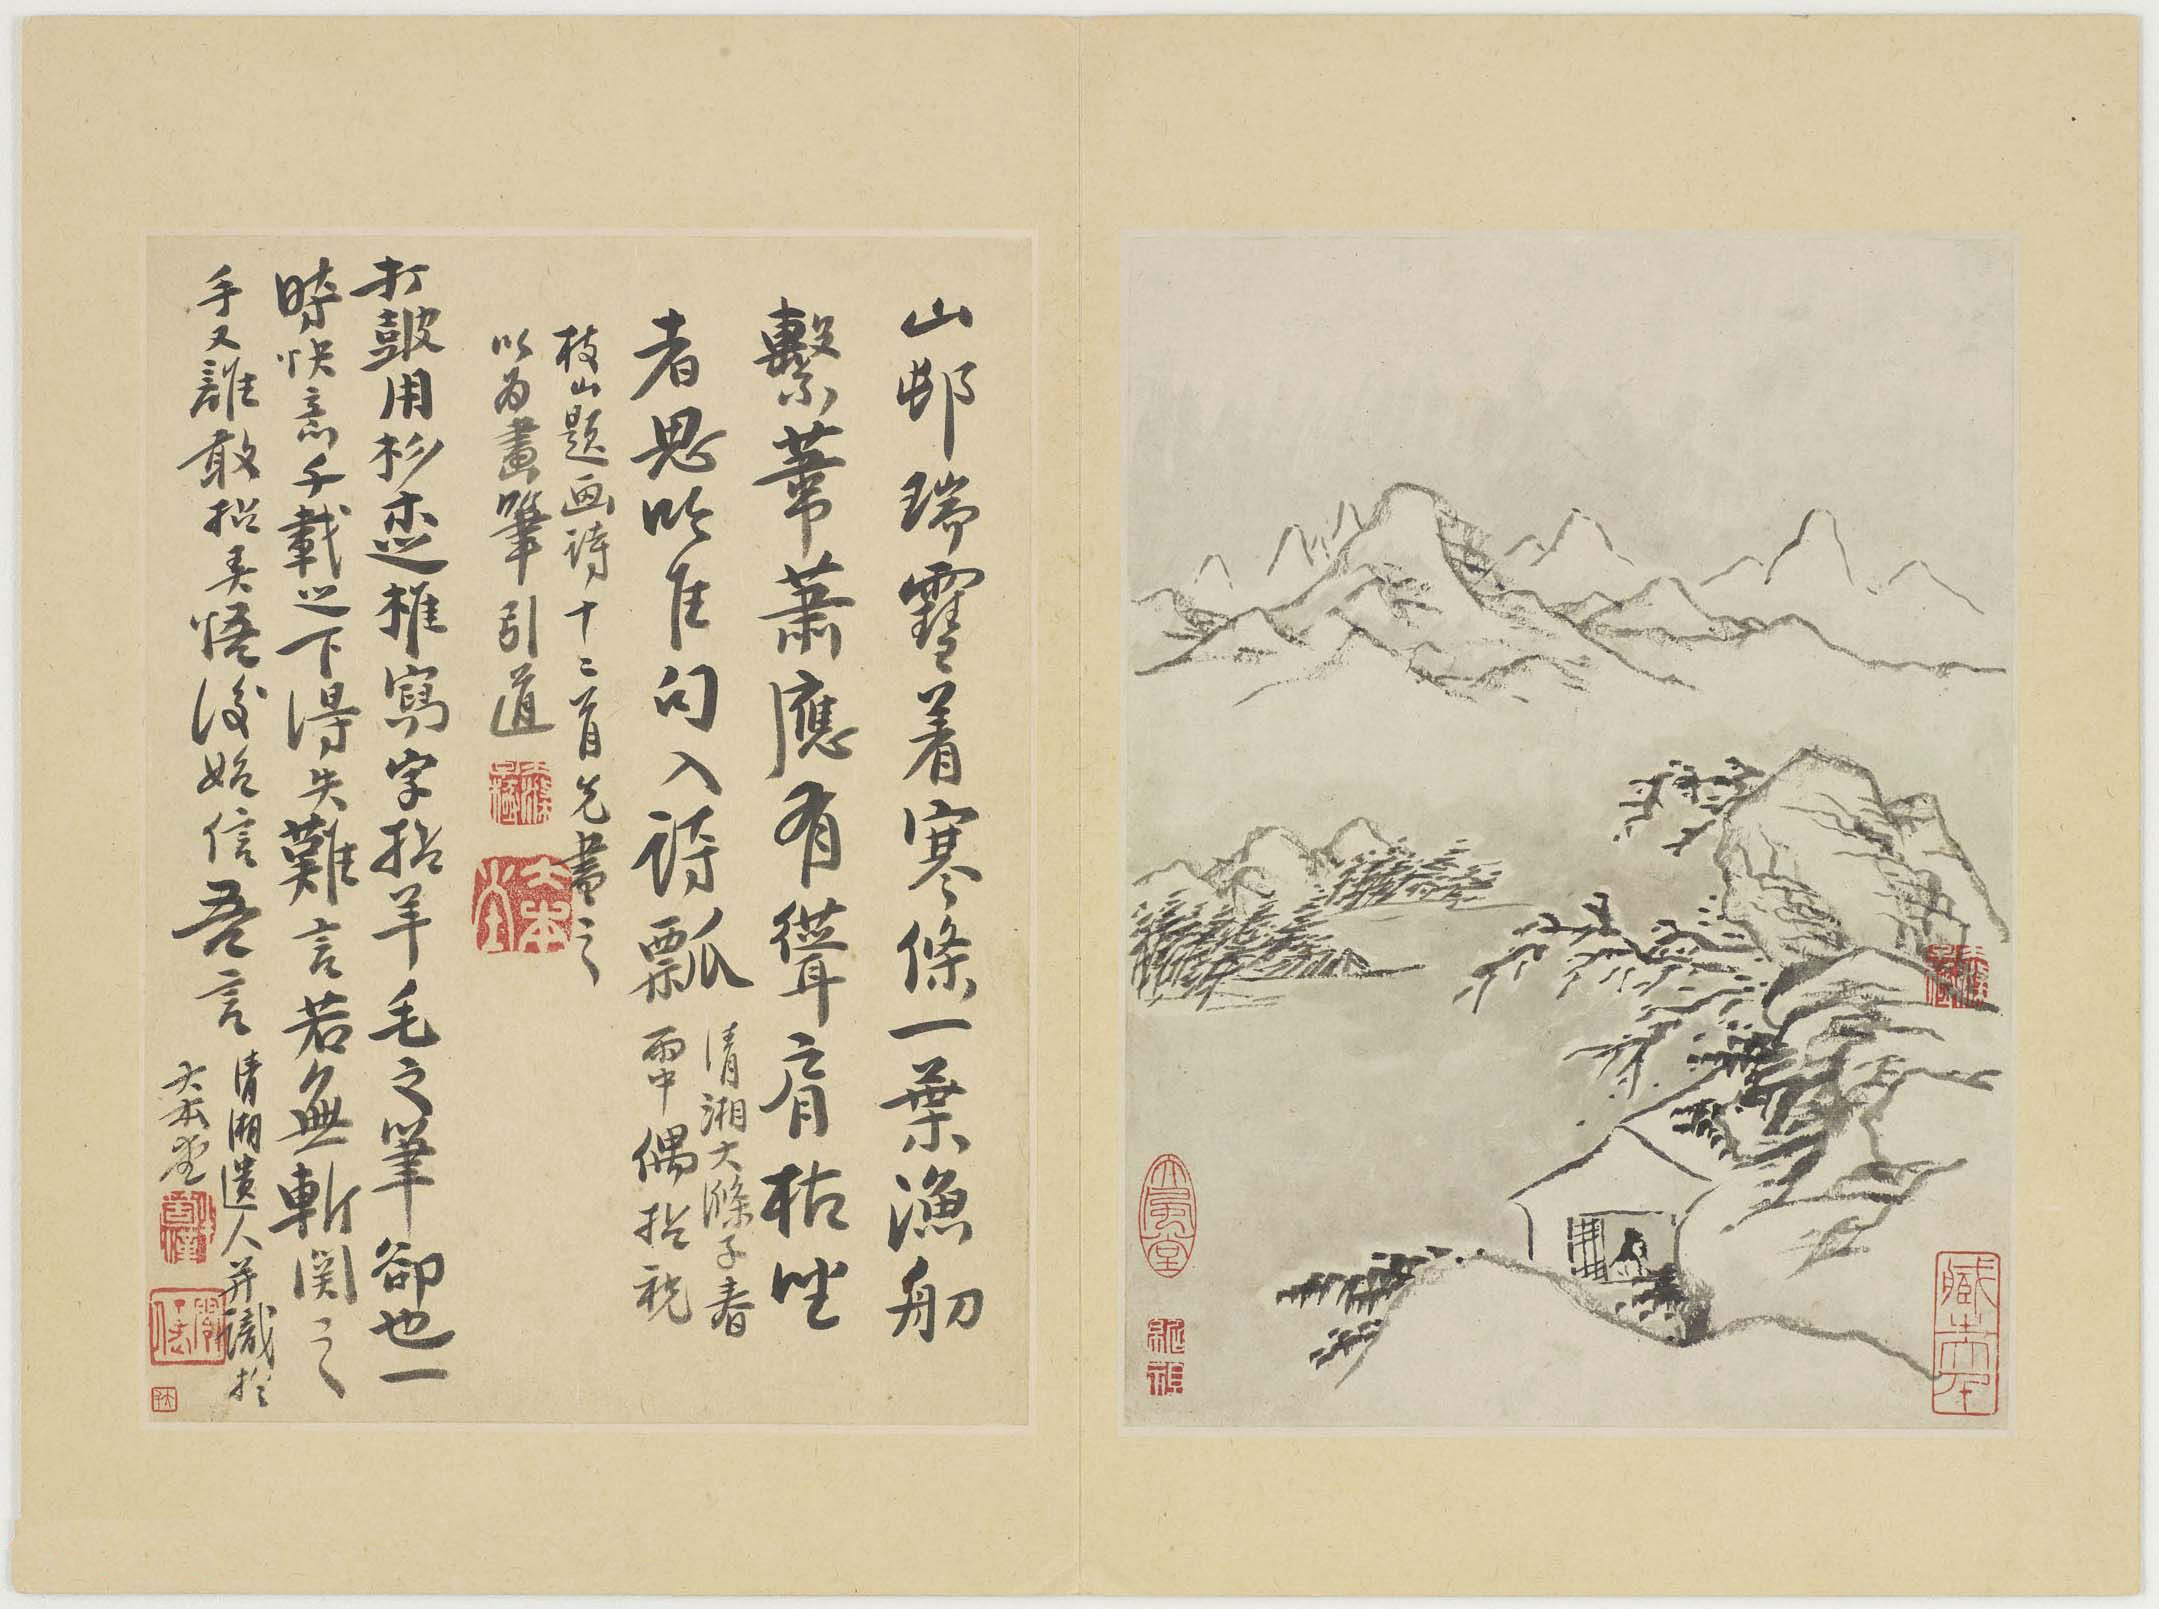 山邨瑞霫着寒條一葉漁舠
繫葦蕭應有聳肩枯坐
者思吟佳句入詩瓢
清湘大滌子春
雨中偶拈祝
枝山題画詩十二首先書之
以為畫筆引道
打鼓用杉木椎寫字拈羊毛之筆卻也一
時快意千載之下得失難言若無斬関之
手又誰敢拈弄悟後始信吾言
清湘遺人并識於
大本堂